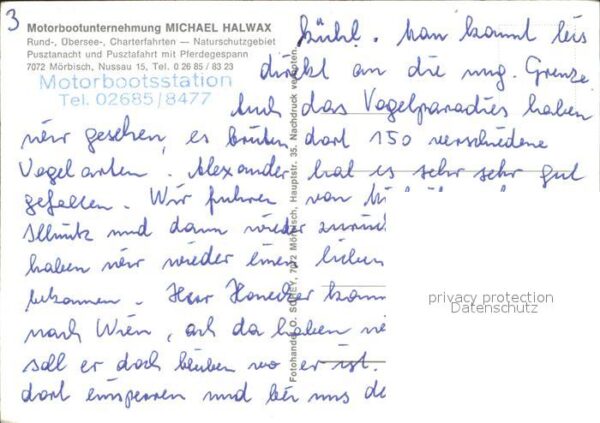 3
Motorbootunternehmung MICHAEL HALWAX
Rund-, Übersee-, Charterfahrten — Naturschutzgebiet
Pusztanacht und Pusztafahrt mit Pferdegespann
7072 Mörbisch, Nussau 15, Tel. 0 26 85 / 83 23
Motorbootsstation
Tel. 02685/8477
kühl. Man kommt bis
direkt an die ung. Grenze.
Auch das Vogelparadies haben
wir gesehen, es brüten dort 150 verschiedene
Vogelarten. Alexander hat es sehr sehr gut
gefallen. Wir fuhren von
Illmitz und dann wieder zurück
haben wir wieder einen lieben
bekommen. Herr Honecker kann
nach Wien, ach da haben wi
soll er doch bleiben wo er ist.
dort einsperren und bei uns de
Fotohandel O. 7072 Mörbisch, Hauptstr. 35. Nachdruck verboten.
privacy protection
Datenschutz